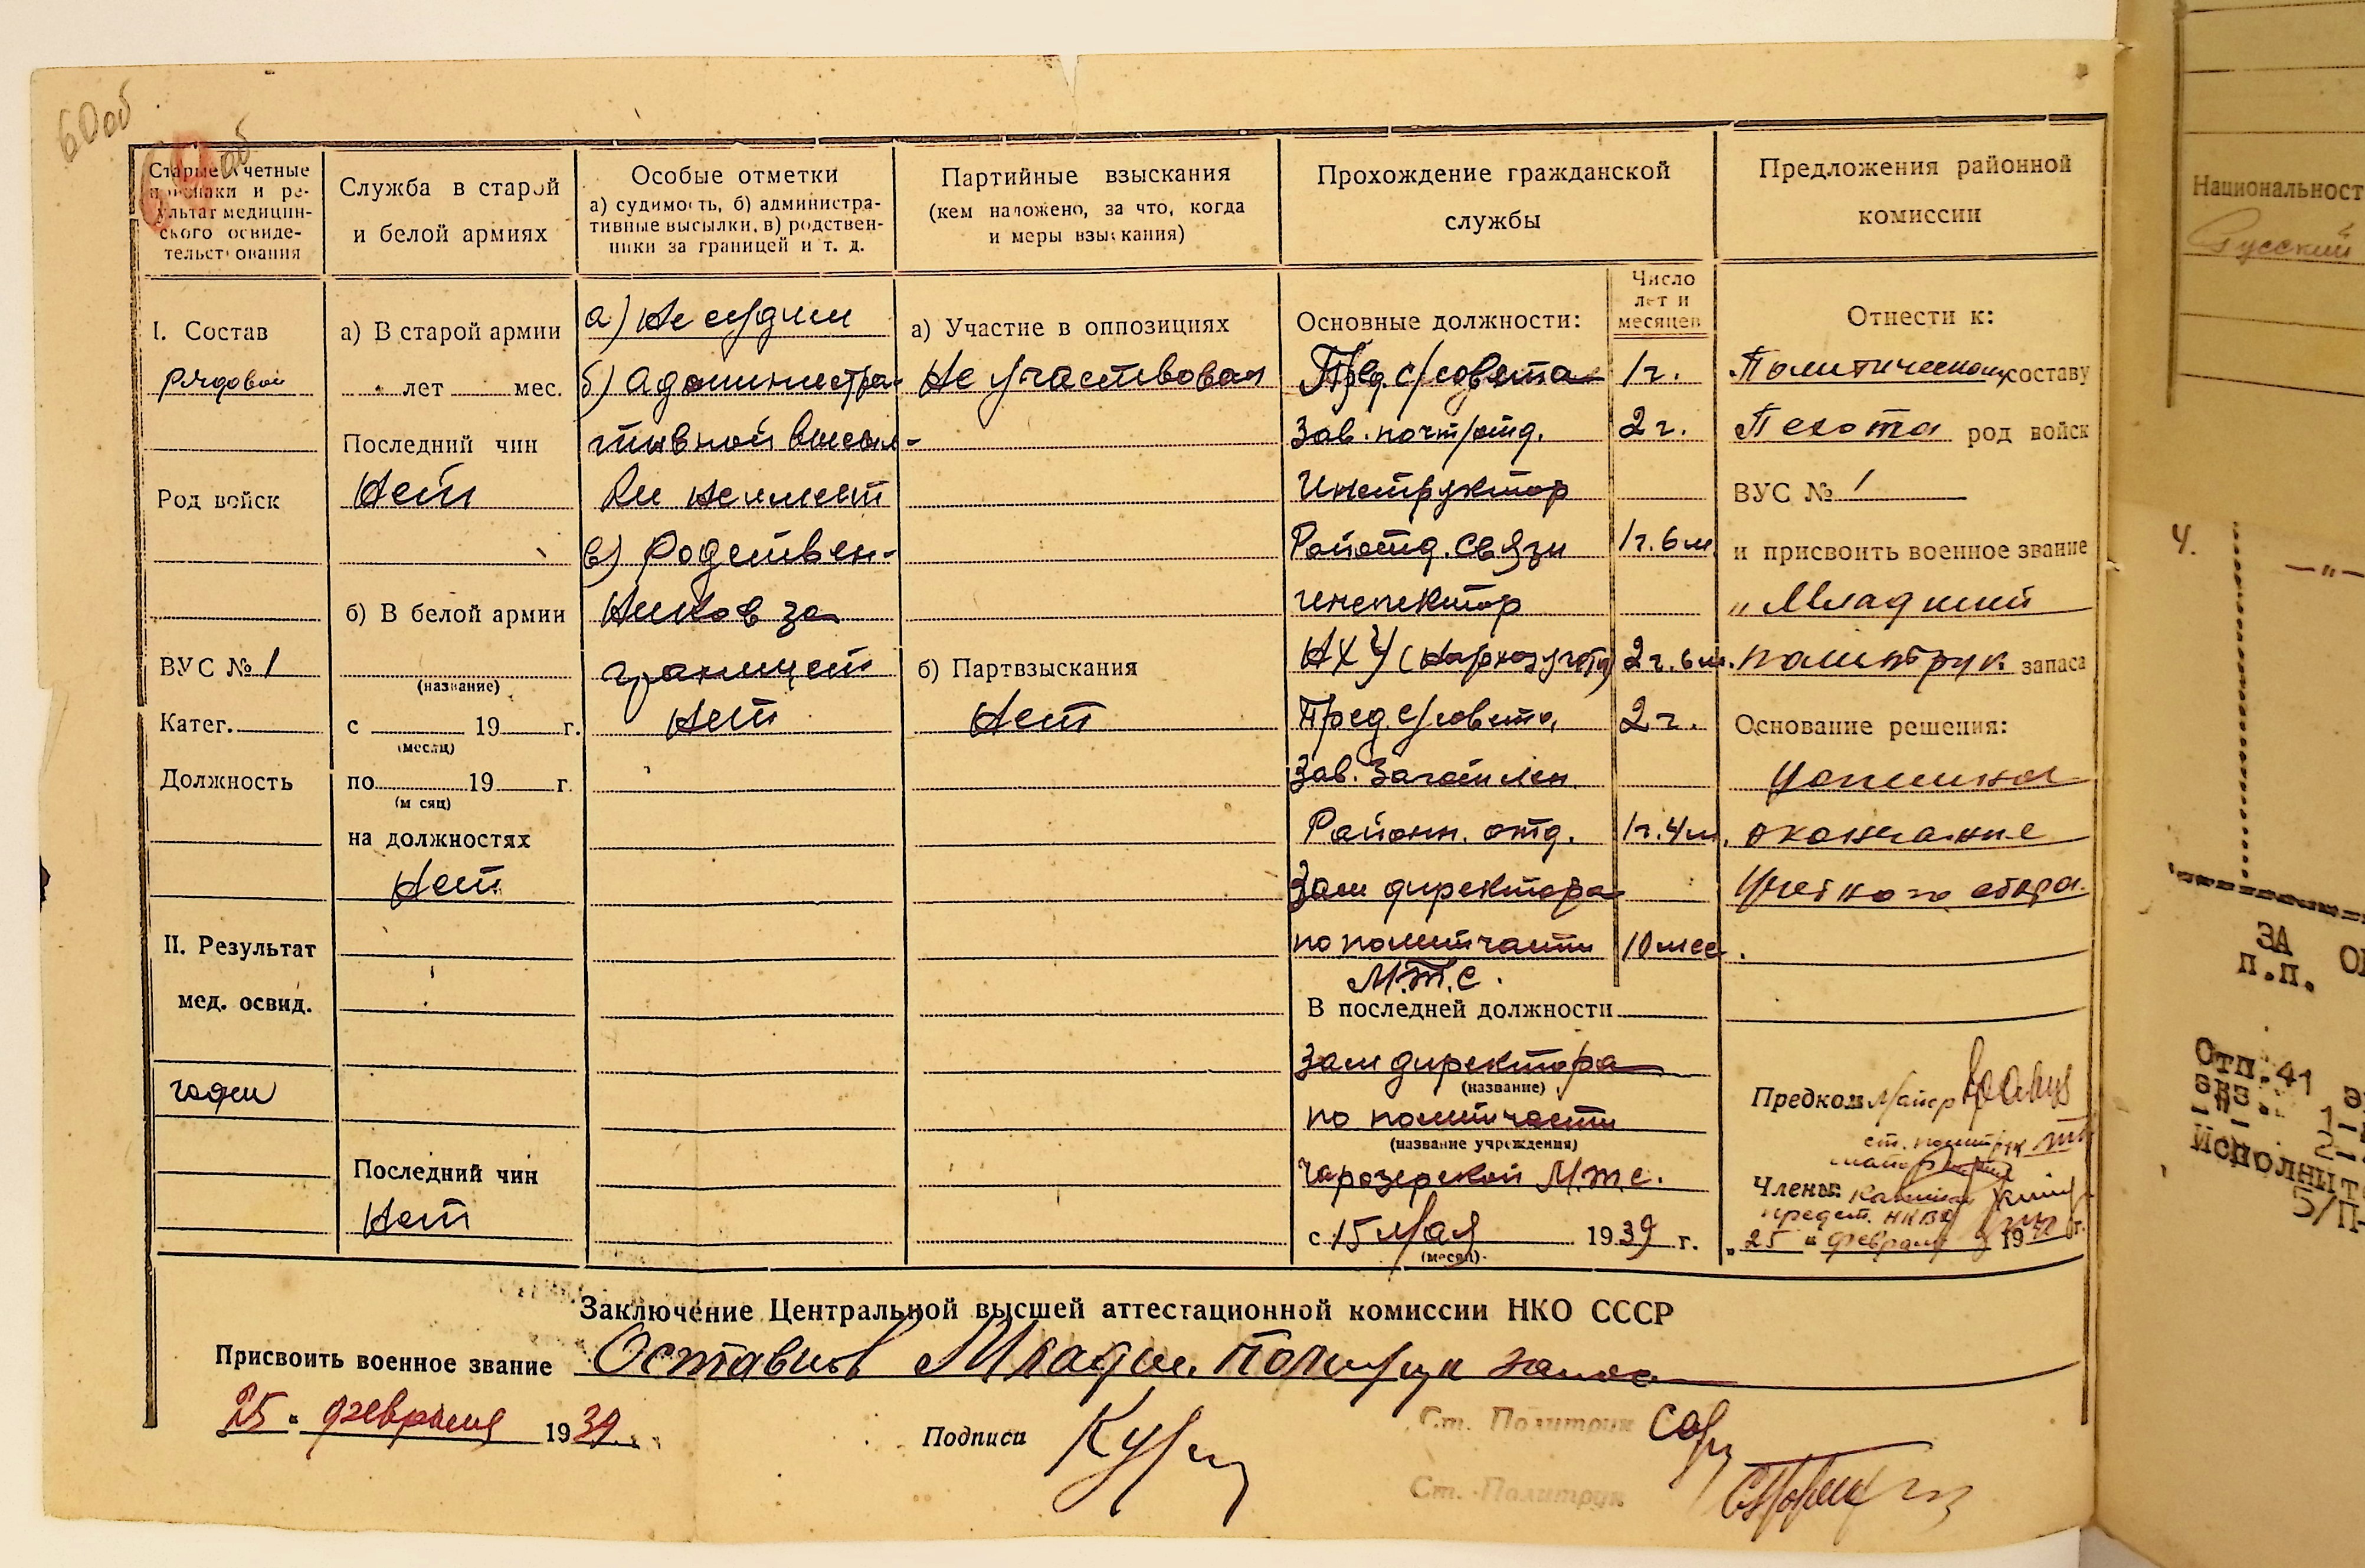 60об
Старые учетные
признаки и ре-
зультат медицин-
ского освиде-
тельствования
I. Состав
рядовой
Род войск
ВУС № 1
Катег.
Должность
II. Результат
мед. освид.
годен
Служба в старой
и белой армиях
а) В старой армии
лет мес.
Последний чин
Нет
б) В белой армии
(название)
с 19 г.
(месяц)
по 19 г.
(месяц)
на должностях
Нет
Последний чин
Нет
Особые отметки
а) судимость, б) административ-
тивные высылки, в) родствен-
ники за границей и т. д.
а) Не судим
б) Администра-
тивной высыл-
ки не имеет
в) Родствен-
ников за
границей
Нет
Партийные взыскания
(кем наложено, за что, когда
и меры взыскания)
а) Участие в оппозициях
Не участвовал
б) Партвзыскания
Нет
Прохождение гражданской
службы
Число
лет и
месяцев
Основные должности:
Пред. с/совета 1г.
Зав. почт/отд. 2 г.
Инструктор
Райотд. связи 1г. 6 м.
инспектор
НХУ (Нархозучета) 2 г. 6 м.
Пред. с/совета, 2 г.
Зав.
Районн. отд. 1г. 4 м.
Зам директора
по политчасти 10 мес.
М.Т.С.
В последней должности
Зам директора
(название)
по политчасти
(название учреждения)
Чарозерской М.Т.С.
с 15 Мая 1939 г.
(месяц)
Предложения районной
комиссии
Отнести к:
Политическому составу
Пехота род войск
ВУС № 1
и присвоить военное звание
„ Младший
политрук запаса
Основание решения:
окончание
Учебного сбора.
Предком Майор
ст. политрук
Члены:
предст. НКВД
„ 25 " февраля 19 г.
Заключение Центральной высшей аттестационной комиссии НКО СССР
Присвоить военное звание Оставить Младш. Политрук запаса
25 " февраля 1939.
Подписи
Ст. Политрук
Ст. Политрук
Национальност
Русский
4.
—"—
ЗА
п.п.
Отп. 41
экз.
Исполнит
5/П-